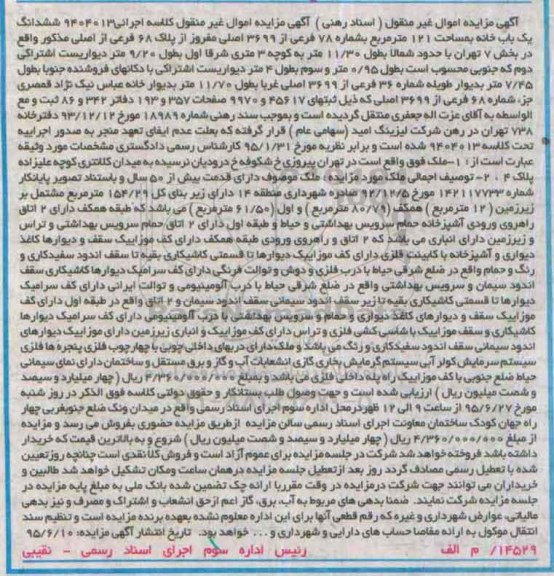 آگهی مزایده اموال غیر منقول ( اسناد رهنی ) آگهی مزایده اموال غیر منقول کلاسه اجرائی ۹۴۰۴۰۱۳ ششدانگ
یک باب خانه بمساحت ۱۲۱ مترمربع بشماره ۷۸ فرعی از ۳۶۹۹ اصلی مفروز از پلاک ۶۸ فرعی از اصلی مذکور واقع
در بخش ۷ تهران با حدود شمالا بطول ۱۱/۳۰ متر به کوچه ۳ متری شرقا اول بطول ۹/۲۰ متر دیواریست اشتراکی
دوم که جنوبی محسوب است بطول ۰/۹۵ متر و سوم بطول ۴ متر دیواریست اشتراکی با دکانهای فروشنده جنوبا بطول
۷/۴۵ متر بدیوار طویله شماره ۳۶ فرعی از ۳۶۹۹ اصلی غربا بطول ۱۱/۷۰ متر بدیوار خانه عباس نیک نژاد قمصری
جزء شماره ۶۸ فرعی از ۳۶۹۹ اصلی که ذیل ثبتهای ۴۵۶۱۷ و ۹۹۷۰ صفحات ۳۵۷ و ۱۹۳ دفاتر ۳۴۲ و ۸۶ ثبت و مع
الواسطه به آقای عزت اله جعفری منتقل گردیده است و بموجب سند رهنی شماره ۱۸۹۸۹ مورخ ۹۳/۱۲/۱۲ دفترخانه
۷۳۸ تهران در رهن شرکت لیزینگ امید (سهامی عام ) قرار گرفته که بعلت عدم ایفای تعهد منجر به صدور اجراییه
تحت کلاسه ۹۴۰۴۰۱۳ شده است و برابر نظریه مورخ ۹۵/۱/۳۱ کارشناس رسمی دادگستری مشخصات مورد وثیقه
عبارت است از : ۱-ملک فوق واقع است در تهران پیروزی خ شکوفه خ درودیان نرسیده به میدان کلانتری کوچه علیزاده
پلاک ۴ . ۲- توصیف اجمالی ملک مورد مزایده : ملک موصوف دارای قدمت بیش از ۵۰ سال و باستناد تصویر پایانکار
شماره ۱۴۲۱۱۷۷۳۳ مورخ ۹۲/۱۲/۵ صادره شهرداری منطقه ۱۴ دارای زیر بنای کل ۱۵۴/۲۹ مترمربع مشتمل بر
زیرزمین ( ۱۲ مترمربع ) همکف (۸۰/۷۹ مترمربع ) و اول (۶۱/۵۰ مترمربع ) می باشد که طبقه همکف دارای ۲ اتاق
راهروی ورودی آشپزخانه حمام سرویس بهداشتی و حیاط و طبقه اول دارای ۲ اتاق حمام سرویس بهداشتی و تراس
و زیرزمین دارای انباری می باشد که ۲ اتاق و راهروی ورودی طبقه همکف دارای کف موزاییک سقف و دیوارها کاغذ
دیواری و آشپزخانه با کابینت فلزی دارای کف موزاییک دیوارها تا قسمتی کاشیکاری بقیه تا سقف اندود سفیدکاری و
رنگ و حمام واقع در ضلع شرقی حیاط با درب فلزی و دوش و توالت فرنگی دارای کف سرامیک دیوارها کاشیکاری سقف
اندود سیمان و سرویس بهداشتی واقع در ضلع شرقی حیاط با درب آلومینیومی و توالت ایرانی دارای کف سرامیک
دیوارها تا قسمتی کاشیکاری بقیه تا زیر سقف اندود سیمانی سقف اندود سیمان و ۲ اتاق واقع در طبقه اول دارای کف
موزاییک سقف و دیوارهای کاغذ دیواری و حمام و سرویس بهداشتی با درب آلومینیومی دارای کف سرامیک دیوارها
کاشیکاری و سقف موزاییک با شاسی کشی فلزی و تراس دارای کف موزاییک و انباری زیرزمین دارای موزاییک دیوارهای
اندود سیمانی سقف اندود سفیدکاری و رنگ می باشد و ملک دارای دربهای داخلی چوبی با چهارچوب فلزی پنجره ها فلزی
سیستم سرمایش کولر آبی سیستم گرمایش بخاری گازی انشعابات آب و گاز و برق مستقل و ساختمان دارای نمای سیمانی
حیاط ضلع جنوبی با کف موزاییک راه پله داخلی فلزی می باشد و بمبلغ ۴/۳۶۰/۰۰۰/۰۰۰ ریال ( چهار میلیارد و سیصد
و شصت میلیون ریال ) ارزیابی شده است و جهت وصول طلب بستانکار و حقوق دولتی کلاسه فوق الذکر در روز شنبه
مورخ ۹۵/۶/۲۷ از ساعت ۹ الی ۱۲ ظهر در محل اداره سوم اجرای اسناد رسمی واقع در میدان ونک ضلع جنوبغربی چهار
راه جهان کودک ساختمان معاونت اجرای اسناد رسمی سالن مزایده ازطریق مزایده حضوری بفروش می رسد و مزایده
از مبلغ ۴/۳۶۰/۰۰۰/۰۰۰ ریال ( چهار میلیارد و سیصد و شصت میلیون ریال ) شروع و به بالاترین قیمت که خریدار
داشته باشد فروخته خواهد شد شرکت در جلسه مزایده برای عموم آزاد است و فروش کلا نقدی است چنانچه روز تعیین
شده با تعطیل رسمی مصادف گردد روز بعد ازتعطیل جلسه مزایده درهمان ساعت ومکان تشکیل خواهد شد طالبین و
خریداران می توانند جهت شرکت درمزایده در وقت مقرر با ارائه چک تضمین شده بانک ملی به مبلغ پایه مزایده در
جلسه مزایده شرکت نمایند. ضمنا بدهی های مربوط به آب، برق، گاز اعم ازحق انشعاب و اشتراک و مصرف و نیز بدهی
مالیاتی، عوارض شهرداری و غیره که رقم قطعی آنها برای این اداره معلوم نشده بعهده برنده مزایده است و تنظیم سند
انتقال موکول به ارائه مفاصا حساب های دارایی و شهرداری و ... خواهد بود. تاریخ انتشار آگهی مزایده : ۹۵/۶/۱۰
۱۴۵۲۹/ م الف رئیس اداره سوم اجرای اسناد رسمی - نقیبی